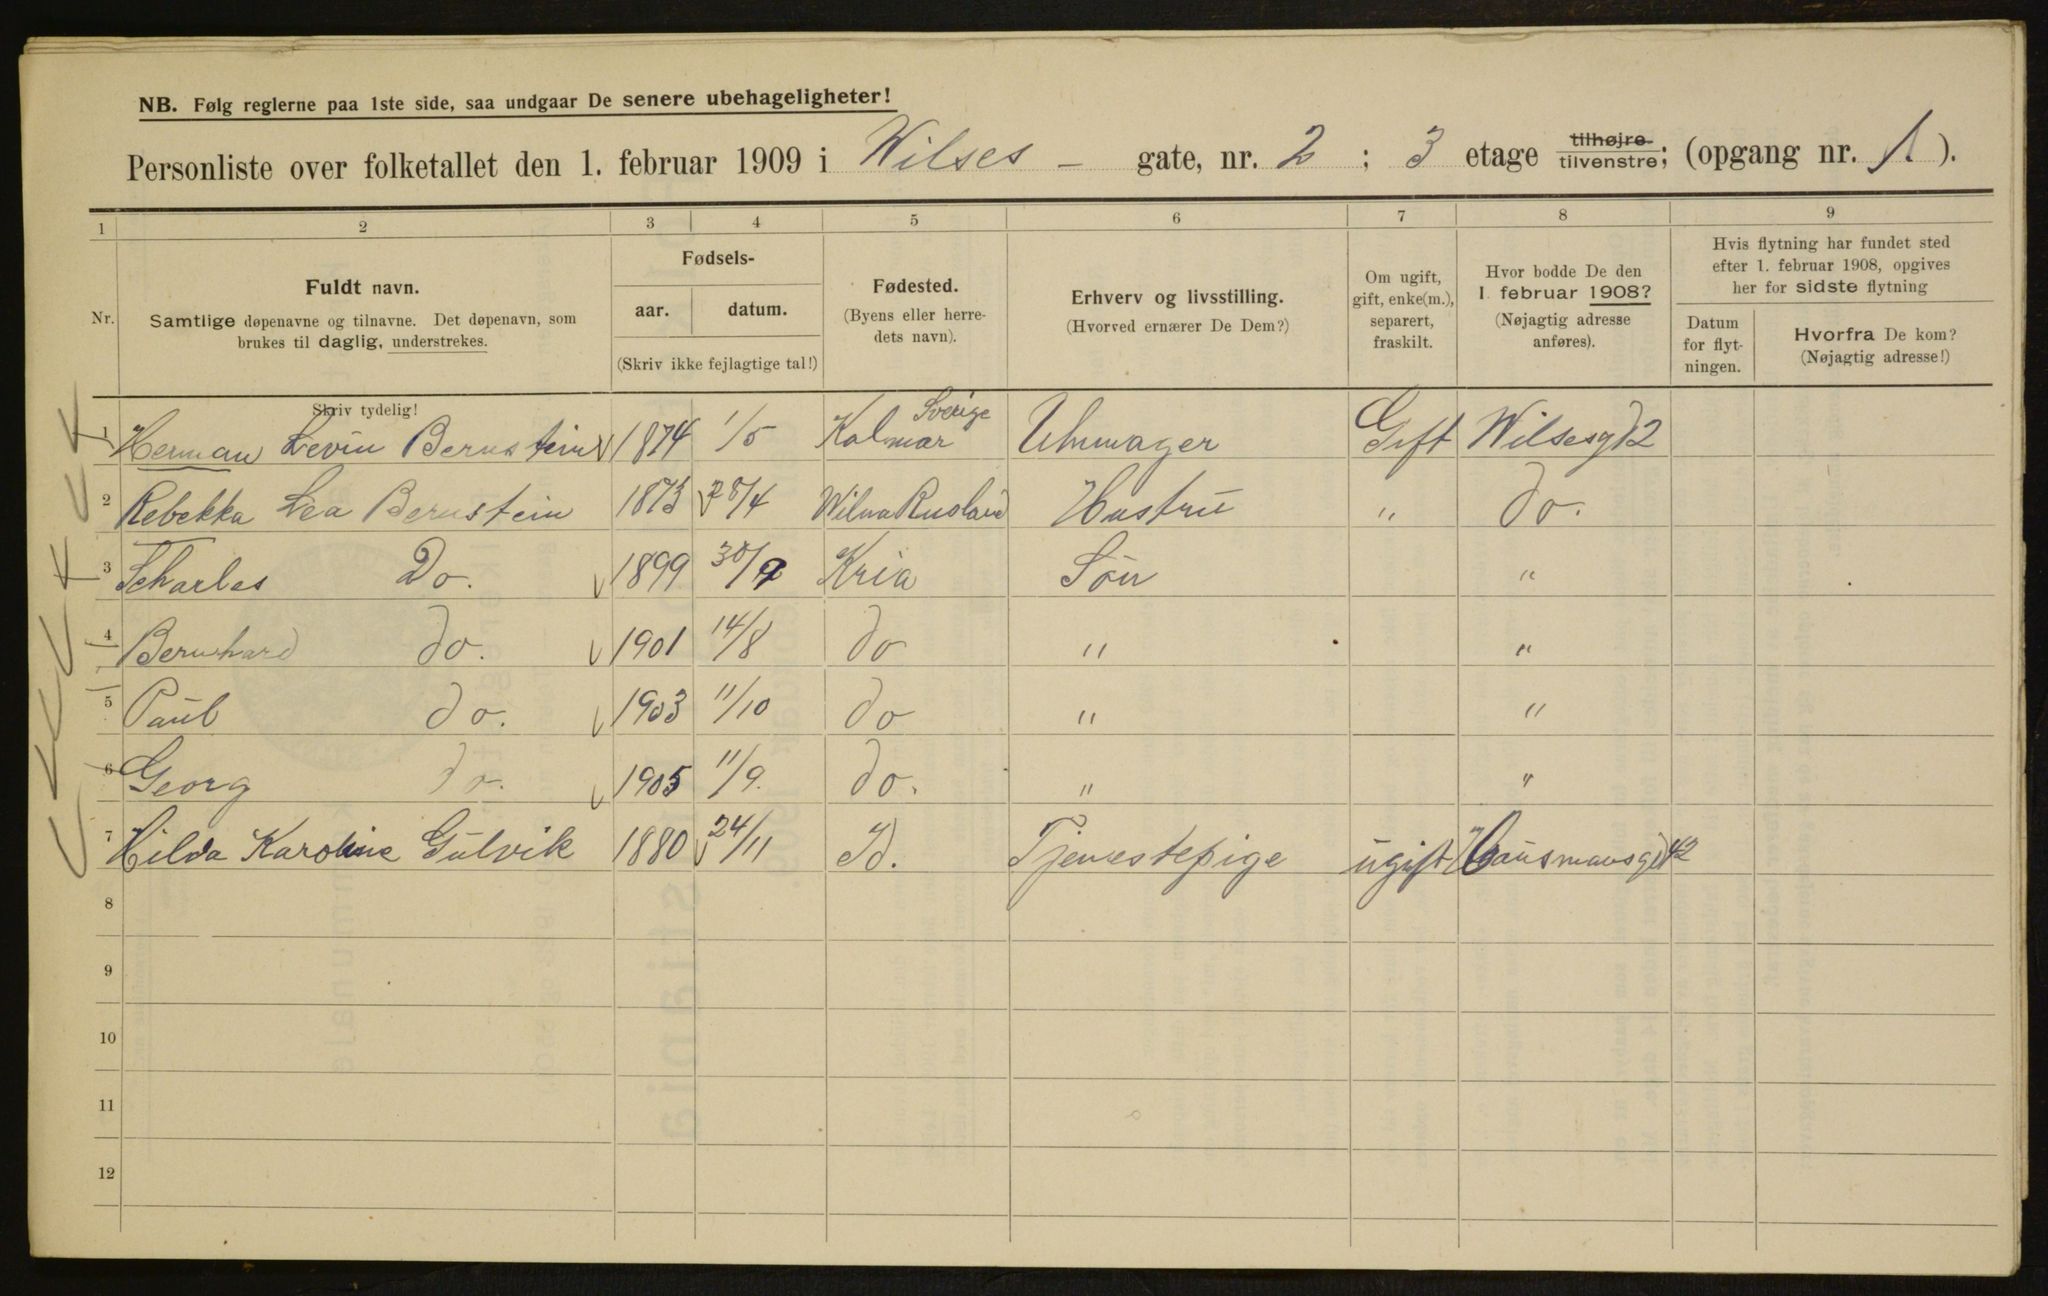 NB. Følg reglerne paa 1ste side, saa undgaar De senere ubehageligheter!
Personliste over folketallet den 1. februar 1909 i Wilses - gate, nr. 2 ; 3 etage tilhøjre tilvenstre; (opgang nr. 1 ).
1 2 3 4 5 6 7 8 9
Nr.
Fuldt navn.
Samtlige døpenavne og tilnavne. Det døpenavn, som
brukes til daglig, understrekes.
Skriv tydelig!
Fødsels-
aar. datum.
(Skriv ikke fejlagtige tal!)
Fødested.
(Byens eller herre-
dets navn).
Erhverv og livsstilling.
(Hvorved ernærer De Dem?)
Om ugift,
gift, enke(m.),
separert,
fraskilt.
Hvor bodde De den
1. februar 1908?
(Nøjagtig adresse
anføres).
Hvis flytning har fundet sted
efter 1. februar 1908, opgives
her for sidste flytning
Datum
for flyt-
ningen.
Hvorfra De kom?
(Nøjagtig adresse!)
1 Herman Levin Bernstein 1874 1/5 Kalmar Sverige Uhrmager Gift Wilsesgd 2
2 Rebekka Lea Bernstein 1873 28/4 Wilna Rusland Hustru " do.
3 Scharles Do. 1899 30/9 Kria Søn "
4 Bernhard do. 1901 14/8 do " "
5 Paul do. 1903 11/10 do " "
6 Georg do. 1905 11/9. do. " "
7 Hilda Karoline Gulvik 1880 24/11 Id. Tjenestepige ugift Hausmansgd 42
8
9
10
11
12